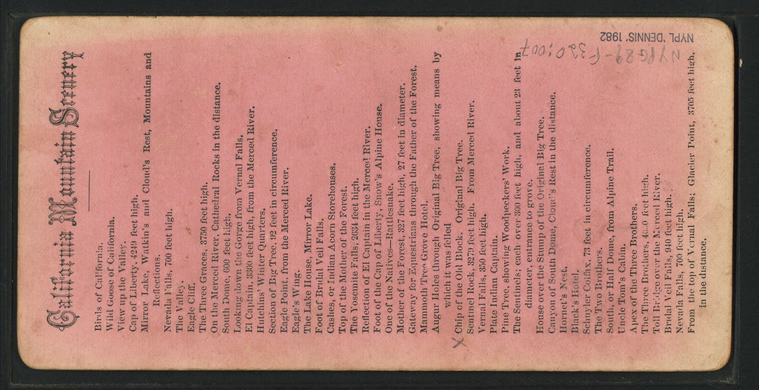 California Mountain Scenery
Birds of California.
Wild Goose of California.
View up the Valley.
Cap of Liberty, 4240 feet high.
Mirror Lake, Watkin's and Cloud's Rest, Mountains and
Reflections.
Nevada Falls, 700 feet high.
The Valley.
Eagle Cliff.
The Three Graces, 3750 feet high.
On the Merced River, Cathedral Rocks in the distance.
South Dome, 600 feet high.
Looking down the Gorge from Vernal Falls.
El Capitan, 3300 feet high, from the Merced River.
Hutchins' Winter Quarters.
Section of Big Tree, 92 feet in circumference.
Eagle Point, from the Merced River.
Eagle's Wing.
The Lake House, Mirror Lake.
Foot of Bridal Veil Falls.
Cashes, or Indian Acorn Storehouses.
Top of the Mother of the Forest.
The Yosemite Falls, 2634 feet high.
Reflection of El Capitan in the Merced River.
Foot of the Cap of Liberty, Snow's Alpine House.
One of the Natives—Rattlesnake.
Mother of the Forest, 327 feet high, 27 feet in diameter.
Gateway for Equestrians through the Father of the Forest.
Mammoth Tree Grove Hotel.
Augur Holes through Original Big Tree, showing means by
which it was felled
X Chip of the Old Block. Original Big Tree.
Sentinel Rock, 3270 feet high. From Merced River.
Vernal Falls, 350 feet high.
Piute Indian Captain.
Pine Tree, showing Woodpeckers' Work.
The Sentinels, each over 300 feet high, and about 23 feet in
diameter, entrance to grove.
House over the Stump of the Original Big Tree.
Canyon of South Dome, Cloud's Rest in the distance.
Hornet's Nest.
Black's Hotel.
Schuyler Colfax, 73 feet in circumference.
The Two Brothers.
South, or Half Dome, from Alpine Trail.
Uncle Tom's Cabin.
Apex of the Three Brothers.
The Three Brothers, feet high.
Toll Bridge over the Merced River.
Bridal Veil Falls, 940 feet high.
Nevada Falls, 700 feet high.
From the top of Vernal Falls. Glacier Point, 3705 feet high,
in the distance.
NYPL 'DENNIS' 1982
NYPG89-F320:007